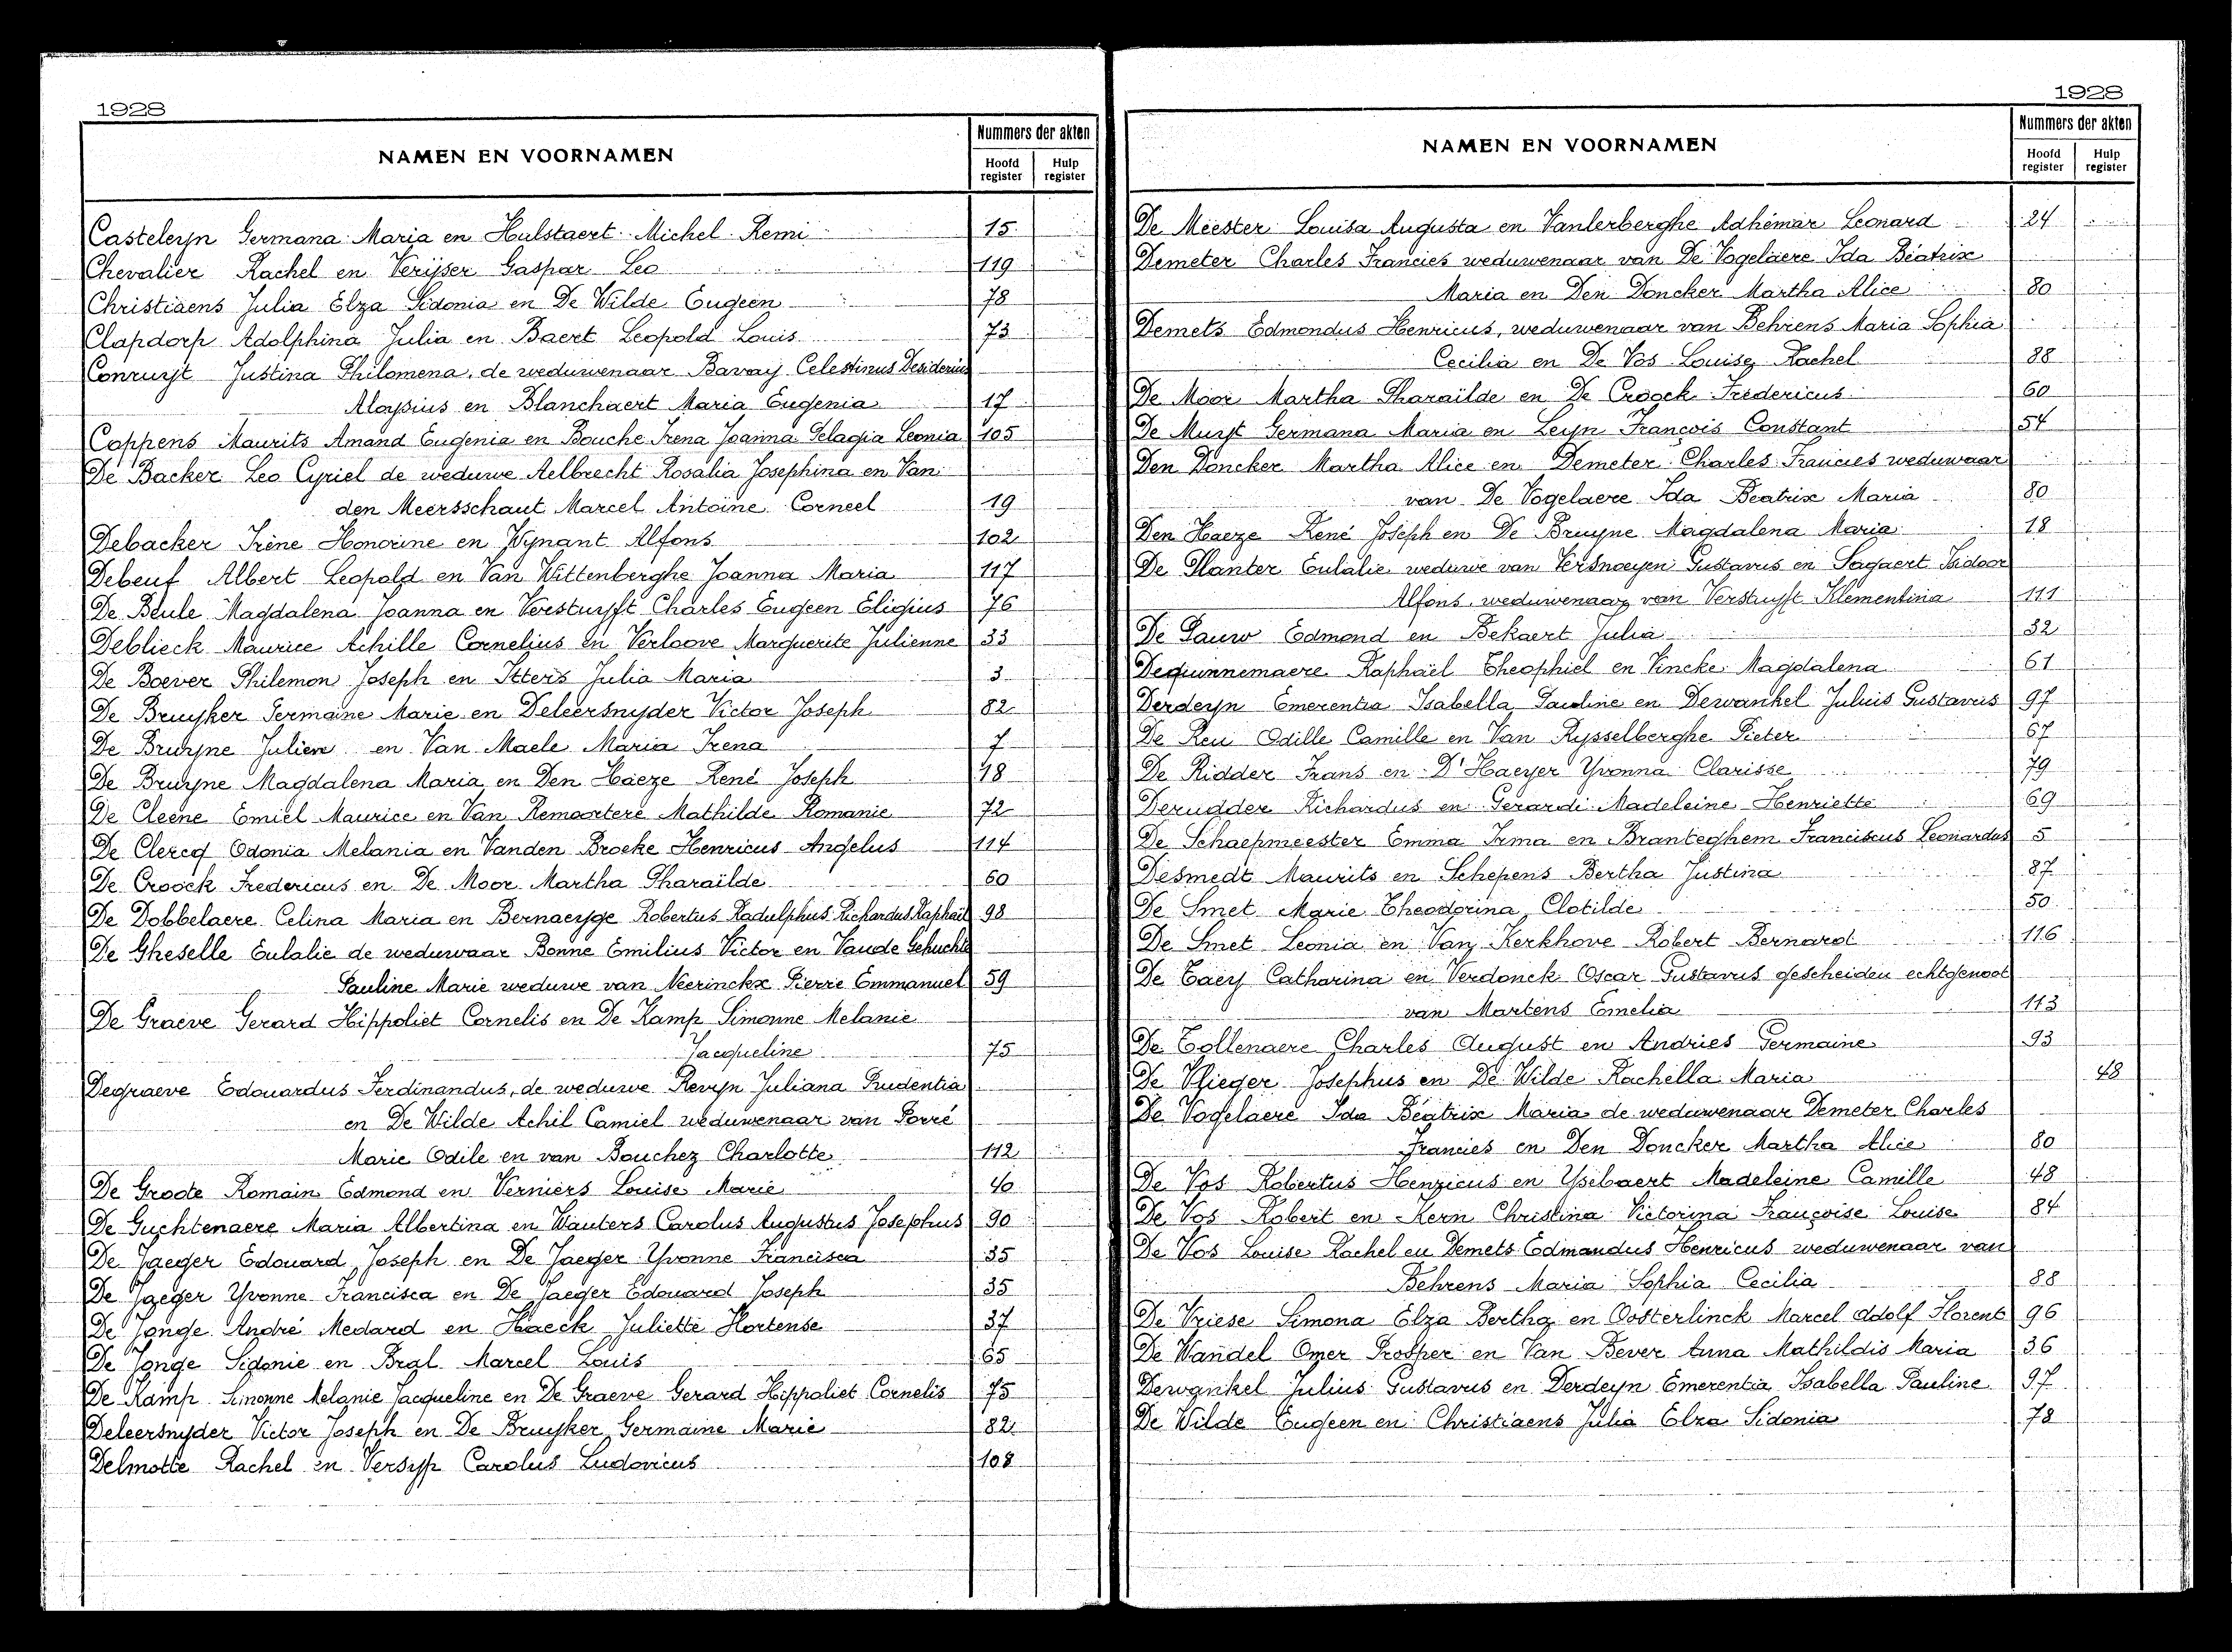 1928
NAMEN EN VOORNAMEN
Nummers der akten
Hoofd register
Hulp register
Casteleyn Germana Maria en Hulstaert Michel Remi 15
Chevalier Rachel en Verijser Gaspar Leo 119
Christiaens Julia Elza Sidonia en De Wilde Eugeen 78
Clapdorp Adolphina Julia en Baert Leopold Louis 73
Conruyt Justina Philomena, de weduwenaar Bavay Celestinus Desiderius
Aloysius en Blanchaert Maria Eugenia 17
Coppens Maurits Amand Eugenia en Bouche Irena Joanna Pelagia Leonia 105
De Backer Leo Cyriel de weduwe Aelbrecht Rosalia Josephina en Van
den Meersschaut Marcel Antoine Corneel 19
Debacker Irène Honorine en Wynant Alfons 102
Debeuf Albert Leopold en Van Wittenberghe Joanna Maria 117
De Beule Magdalena Joanna en Verstuyft Charles Eugeen Eligius 76
Deblieck Maurice Achille Cornelius en Verloove Marguerite Julienne 33
De Boever Philemon Joseph en Itters Julia Maria 3
De Bruyker Germaine Marie en Deleersnyder Victor Joseph 82
De Bruyne Julien en Van Maele Maria Irena 7
De Bruyne Magdalena Maria en Den Haeze René Joseph 18
De Cleene Emiel Maurice en Van Remoortere Mathilde Romanie 72
De Clercq Odonia Melania en Vanden Broeke Henricus Angelus 114
De Croock Fredericus en De Moor Martha Pharaïlde 60
De Dobbelaere Celina Maria en Bernaeyge Robertus Radulphus Richardus Raphaël 98
De Gheselle Eulalie de weduwaar Bonne Emilius Victor en Vande Gehuchte
Pauline Marie weduwe van Neerinckx Pierre Emmanuel 59
De Graeve Gerard Hippoliet Cornelis en De Kamp Simonne Melanie
Jacqueline 75
Degraeve Edouardus Ferdinandus, de weduwe Reryn Juliana Prudentia
en De Wilde Achil Camiel weduwenaar van Porré
Marie Odile en van Bouchez Charlotte 112
De Groote Romain Edmond en Verniers Louise Marie 40
De Guchtenaere Maria Albertina en Wauters Carolus Augustus Josephus 90
De Jaeger Edouard Joseph en De Jaeger Yvonne Francisca 35
De Jaeger Yvonne Francisca en De Jaeger Edouard Joseph 35
De Jonge André Medard en Haeck Juliette Hortense 37
De Jonge Sidonie en Bral Marcel Louis 65
De Kamp Simonne Melanie Jacqueline en De Graeve Gerard Hippoliet Cornelis 75
Deleersnyder Victor Joseph en De Bruyker Germaine Marie 82
Delmotte Rachel en Versyp Carolus Ludovicus 108
1928
NAMEN EN VOORNAMEN
Nummers der akten
Hoofd register
Hulp register
De Meester Louisa Augusta en Vanlerberghe Adhémar Leonard 24
Demeter Charles Francies weduwenaar van De Vogelaere Ida Béatrix
Maria en Den Doncker Martha Alice 80
Demets Edmondus Henricus, weduwenaar van Behrens Maria Sophia
Cecilia en De Vos Louise Rachel 88
De Moor Martha Pharaïlde en De Croock Fredericus 60
De Muyt Germana Maria en Leyn François Constant 54
Den Doncker Martha Alice en Demeter Charles Francies weduwaar
van De Vogelaere Ida Beatrix Maria 80
Den Haeze René Joseph en De Bruyne Magdalena Maria 18
De Planter Eulalie weduwe van Versnoeyen Gustavus en Sagaert Isidoor
Alfons, weduwenaar van Verstuyft Klementina 111
De Pauw Edmond en Bekaert Julia 32
Dequnnemaere Raphaël Theophiel en Vincke Magdalena 61
Derdeyn Emerentia Isabella Pauline en Dewankel Julius Gustavus 97
De Reu Odille Camille en Van Rysselberghe Pieter 67
De Ridder Frans en D'Haeyer Yvonna Clarisse 79
Derudder Richardus en Gerardi Madeleine Henriette 69
De Schaepmeester Emma Irma en Branteghem Franciscus Leonardus 5
Desmedt Maurits en Schepens Bertha Justina 87
De Smet Marie Theodorina Clotilde 50
De Smet Leonia en Van Kerkhove Robert Bernard 116
De Taey Catharina en Verdonck Oscar Gustavus gescheiden echtgenoot
van Martens Emelia 113
De Tollenaere Charles August en Andries Germaine 93
De Vlieger Josephus en De Wilde Rachella Maria 48
De Vogelaere Ida Béatrix Maria de weduwenaar Demeter Charles
Francies en Den Doncker Martha Alice 80
De Vos Robertus Henricus en Ysebaert Madeleine Camille 48
De Vos Robert en Kern Christina Victorina Françoise Louise 84
De Vos Louise Rachel en Demets Edmondus Henricus weduwenaar van
Behrens Maria Sophia Cecilia 88
De Vriese Simona Elza Bertha en Oosterlinck Marcel Adolf Florent 96
De Wandel Omer Prosper en Van Bever Anna Mathildis Maria 36
Dewankel Julius Gustavus en Derdeyn Emerentia Isabella Pauline 97
De Wilde Eugeen en Christiaens Julia Elza Sidonia 78